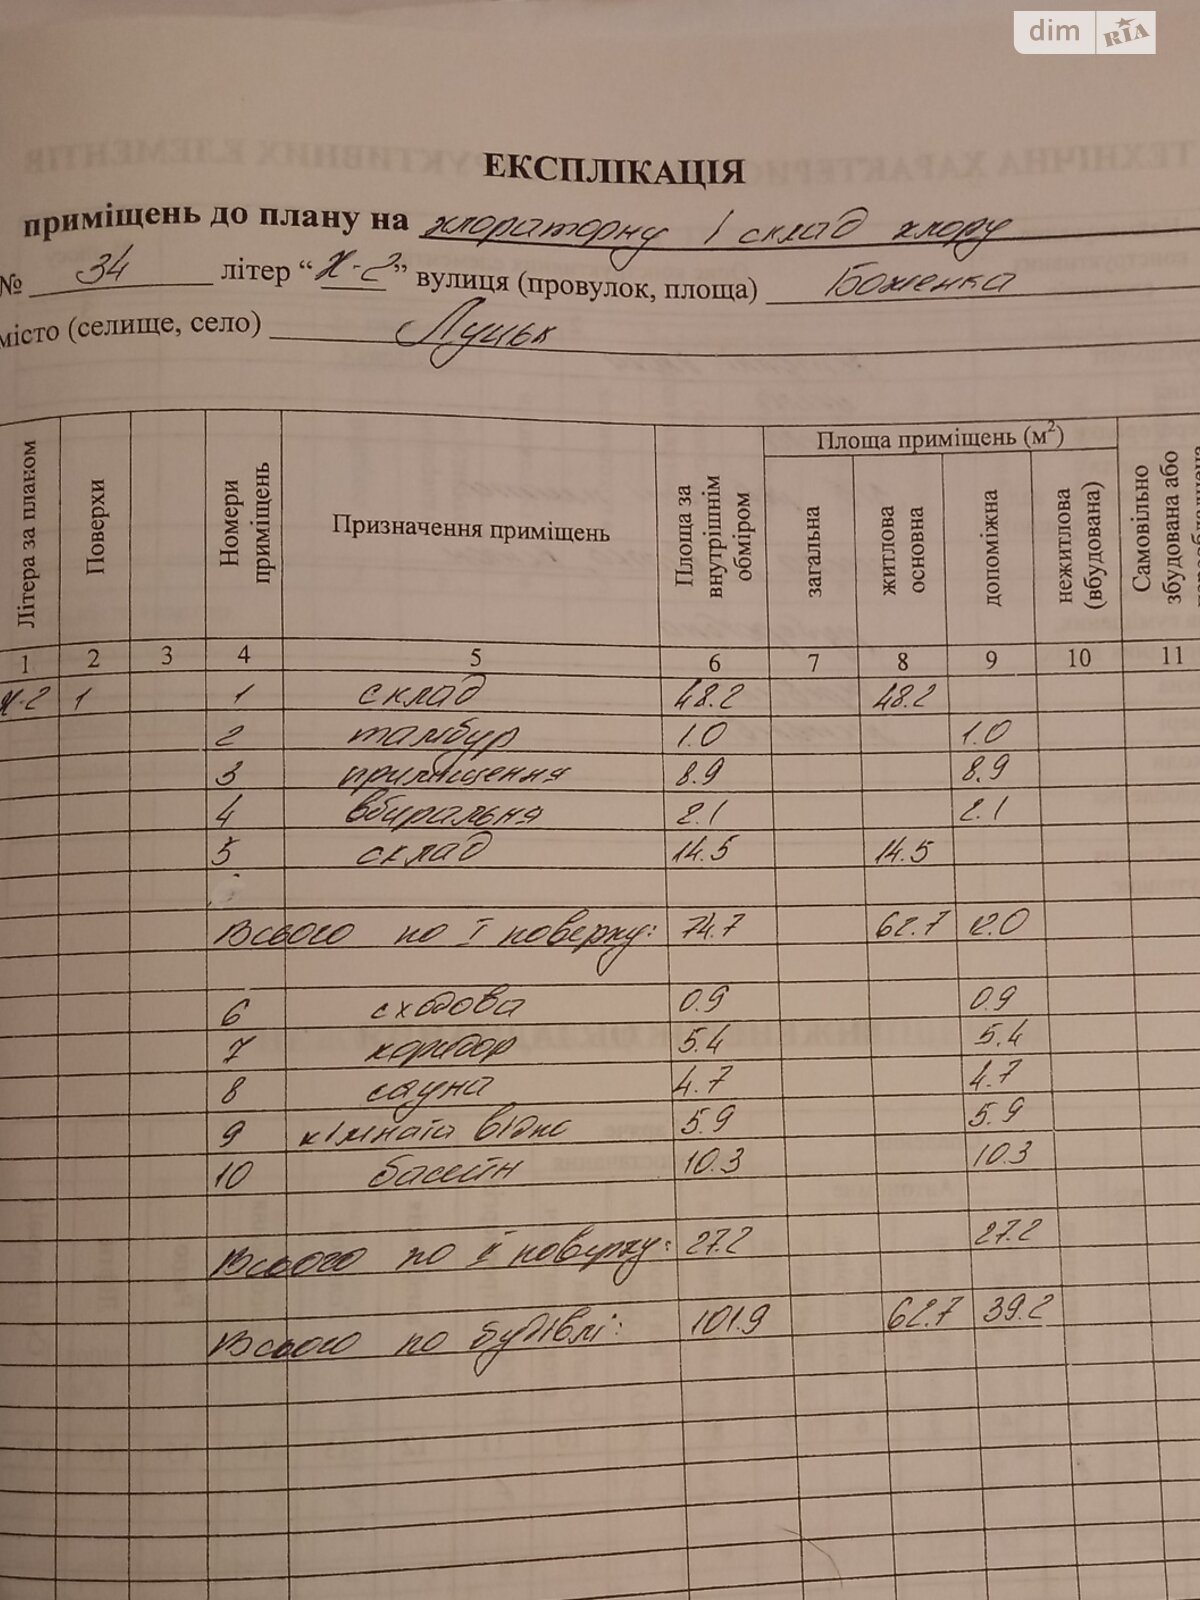 dim RIA
ЕКСПЛІКАЦІЯ
приміщень до плану на хлораторну і склад хлору
№ 34 літер “Ж-2” вулиця (провулок, площа) Боженка
місто (селище, село) Луцьк
Площа приміщень (м²)
Літера за планом Поверхи Номери приміщень Призначення приміщень Площа за внутрішнім обміром загальна житлова основна допоміжна нежитлова (вбудована) Самовільно збудована або
1 2 3 4 5 6 7 8 9 10 11
Ж-2 1 1 склад 48.2 48.2
2 тамбур 1.0 1.0
3 приміщення 8.9 8.9
4 вбиральня 2.1 2.1
5 склад 14.5 14.5
Всього по І поверху: 74.7 62.7 12.0
6 сходова 0.9 0.9
7 коридор 5.4 5.4
8 сауна 4.7 4.7
9 кімната відпо 5.9 5.9
10 басейн 10.3 10.3
Всього по ІІ поверху: 27.2 27.2
Всього по будівлі: 101.9 62.7 39.2